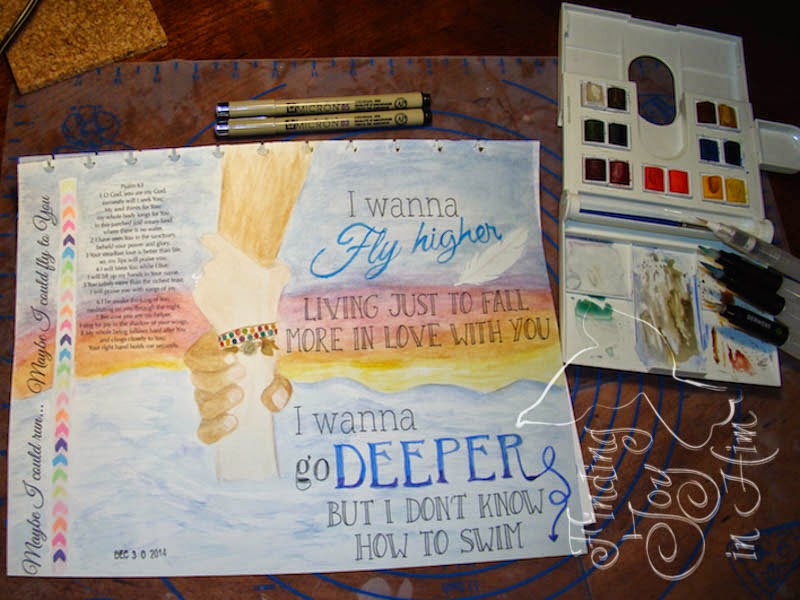 MICRON
MICRON
Maybe I could run... Maybe I could fly to You
Psalm 63
1 O God, you are my God,
earnestly will I seek You;
My soul thirsts for You;
my whole body longs for You
in this parched and weary land
where there is no water.
2 I have seen You in the sanctuary,
beheld your power and glory.
3 Your steadfast love is better than life,
so, my lips will praise you.
4 I will bless You while I live;
I will lift up my hands in Your name.
5 You satisfy more than the richest feast.
I will praise you with songs of joy.
6 I lie awake thinking of You,
meditating on you through the night.
7 Because you are my helper,
I sing for joy in the shadow of your wings.
8 My whole being follows hard after You
and clings closely to You;
Your right hand holds me securely.
I wanna
Fly higher
LIVING JUST TO FALL
MORE IN LOVE WITH YOU
I wanna
go DEEPER
BUT I DON'T KNOW
HOW TO SWIM
DEC 30 2014
Finding
Joy
in Him